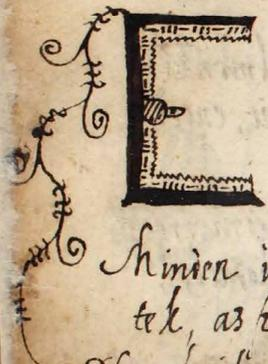 E
Minden
tek, az